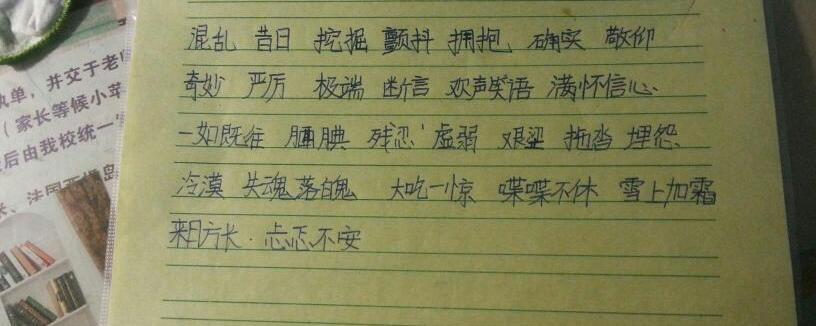 混乱 昔日 挖掘 颤抖 拥抱 确实 敬仰
奇妙 严厉 极端 断言 欢声笑语 满怀信心
一如既往 腼腆 残忍 虚弱 艰 拖沓 埋怨
冷漠 失魂落魄 大吃一惊 喋喋不休 雪上加霜
来日方长 忐忑不安
执单，并交于老
（家长等候小苹
后由我校统一